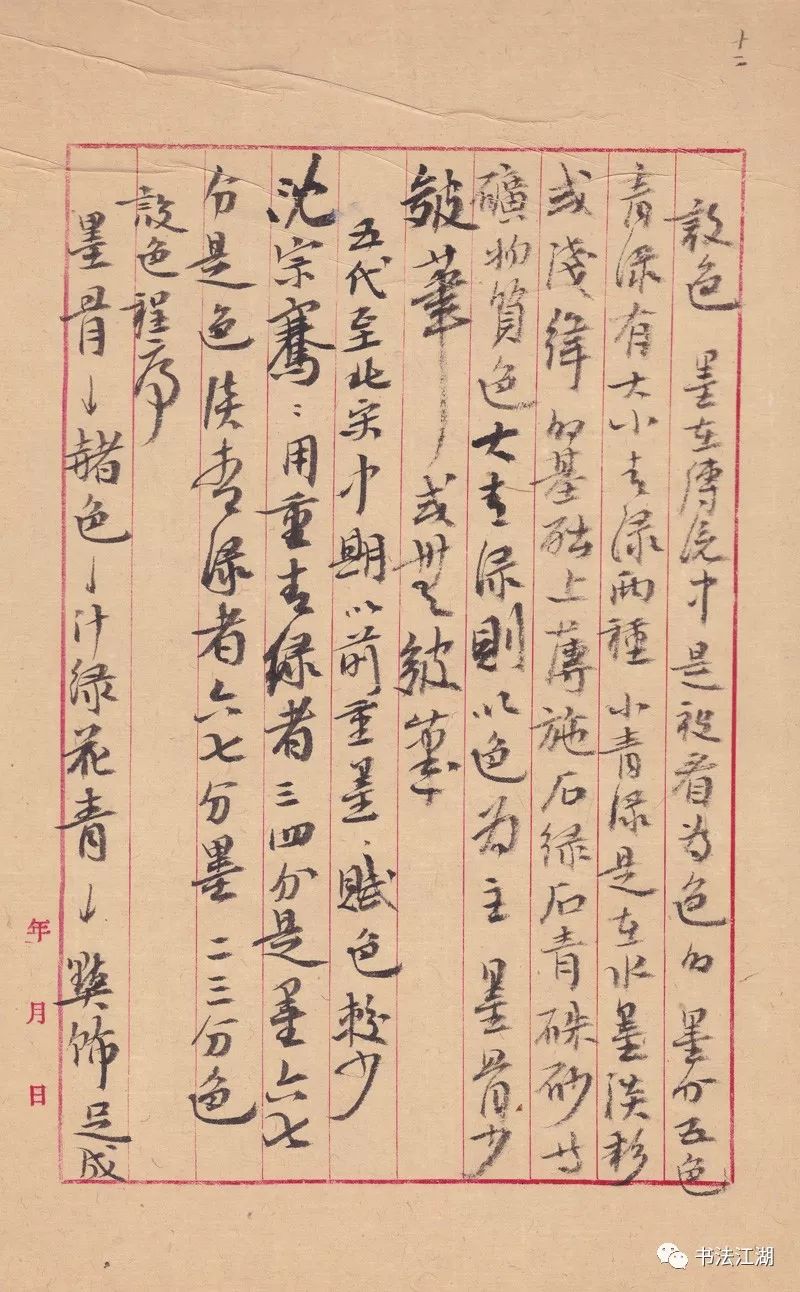 十二
設色 墨在傳統中是被看为色的 墨分五色
青绿有大小青绿兩種 小青绿是在水墨淡彩
或淺絳的基础上薄施石绿石青硃砂等
礦物質色 大青绿則以色为主 墨骨少
皴筆 或無皴筆
五代至北宋中期以前重墨、賦色較少
沈宗騫：用重青绿者三四分是墨六七
分是色 淡青绿者六七分墨 二三分色
設色程序
墨骨↓赭色↓汁绿花青↓點飾足成
年 月 日
书法江湖